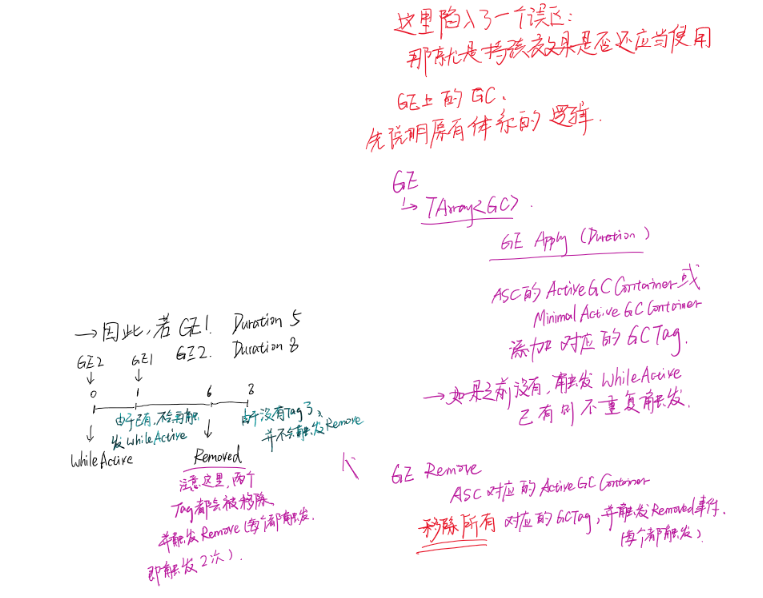 这里陷入了一个误区:
那就是持续效果是否还应当使用
GE上的GC.
先说明原有体系的逻辑.
GE
↳ TArray<GC>.
GE Apply (Duration)
ASC的ActiveGCContainer或
MinimalActiveGCContainer
添加对应的GCTag.
→如果之前没有,触发WhileActive
已有则不重复触发.
GE Remove
ASC对应的ActiveGCContainer
移除所有对应的GCTag,并触发Removed事件.
(每个都触发).
→因此,若GE1. Duration 5
GE2. Duration 8
GE2 GE1
0 1 6 8
由于已有,不会再触
发WhileActive
由于没有Tag了,
并不会触发Remove
WhileActive Removed
注意这里,两个
Tag都会被移除
并触发Remove(每个都触发.
即触发2次).